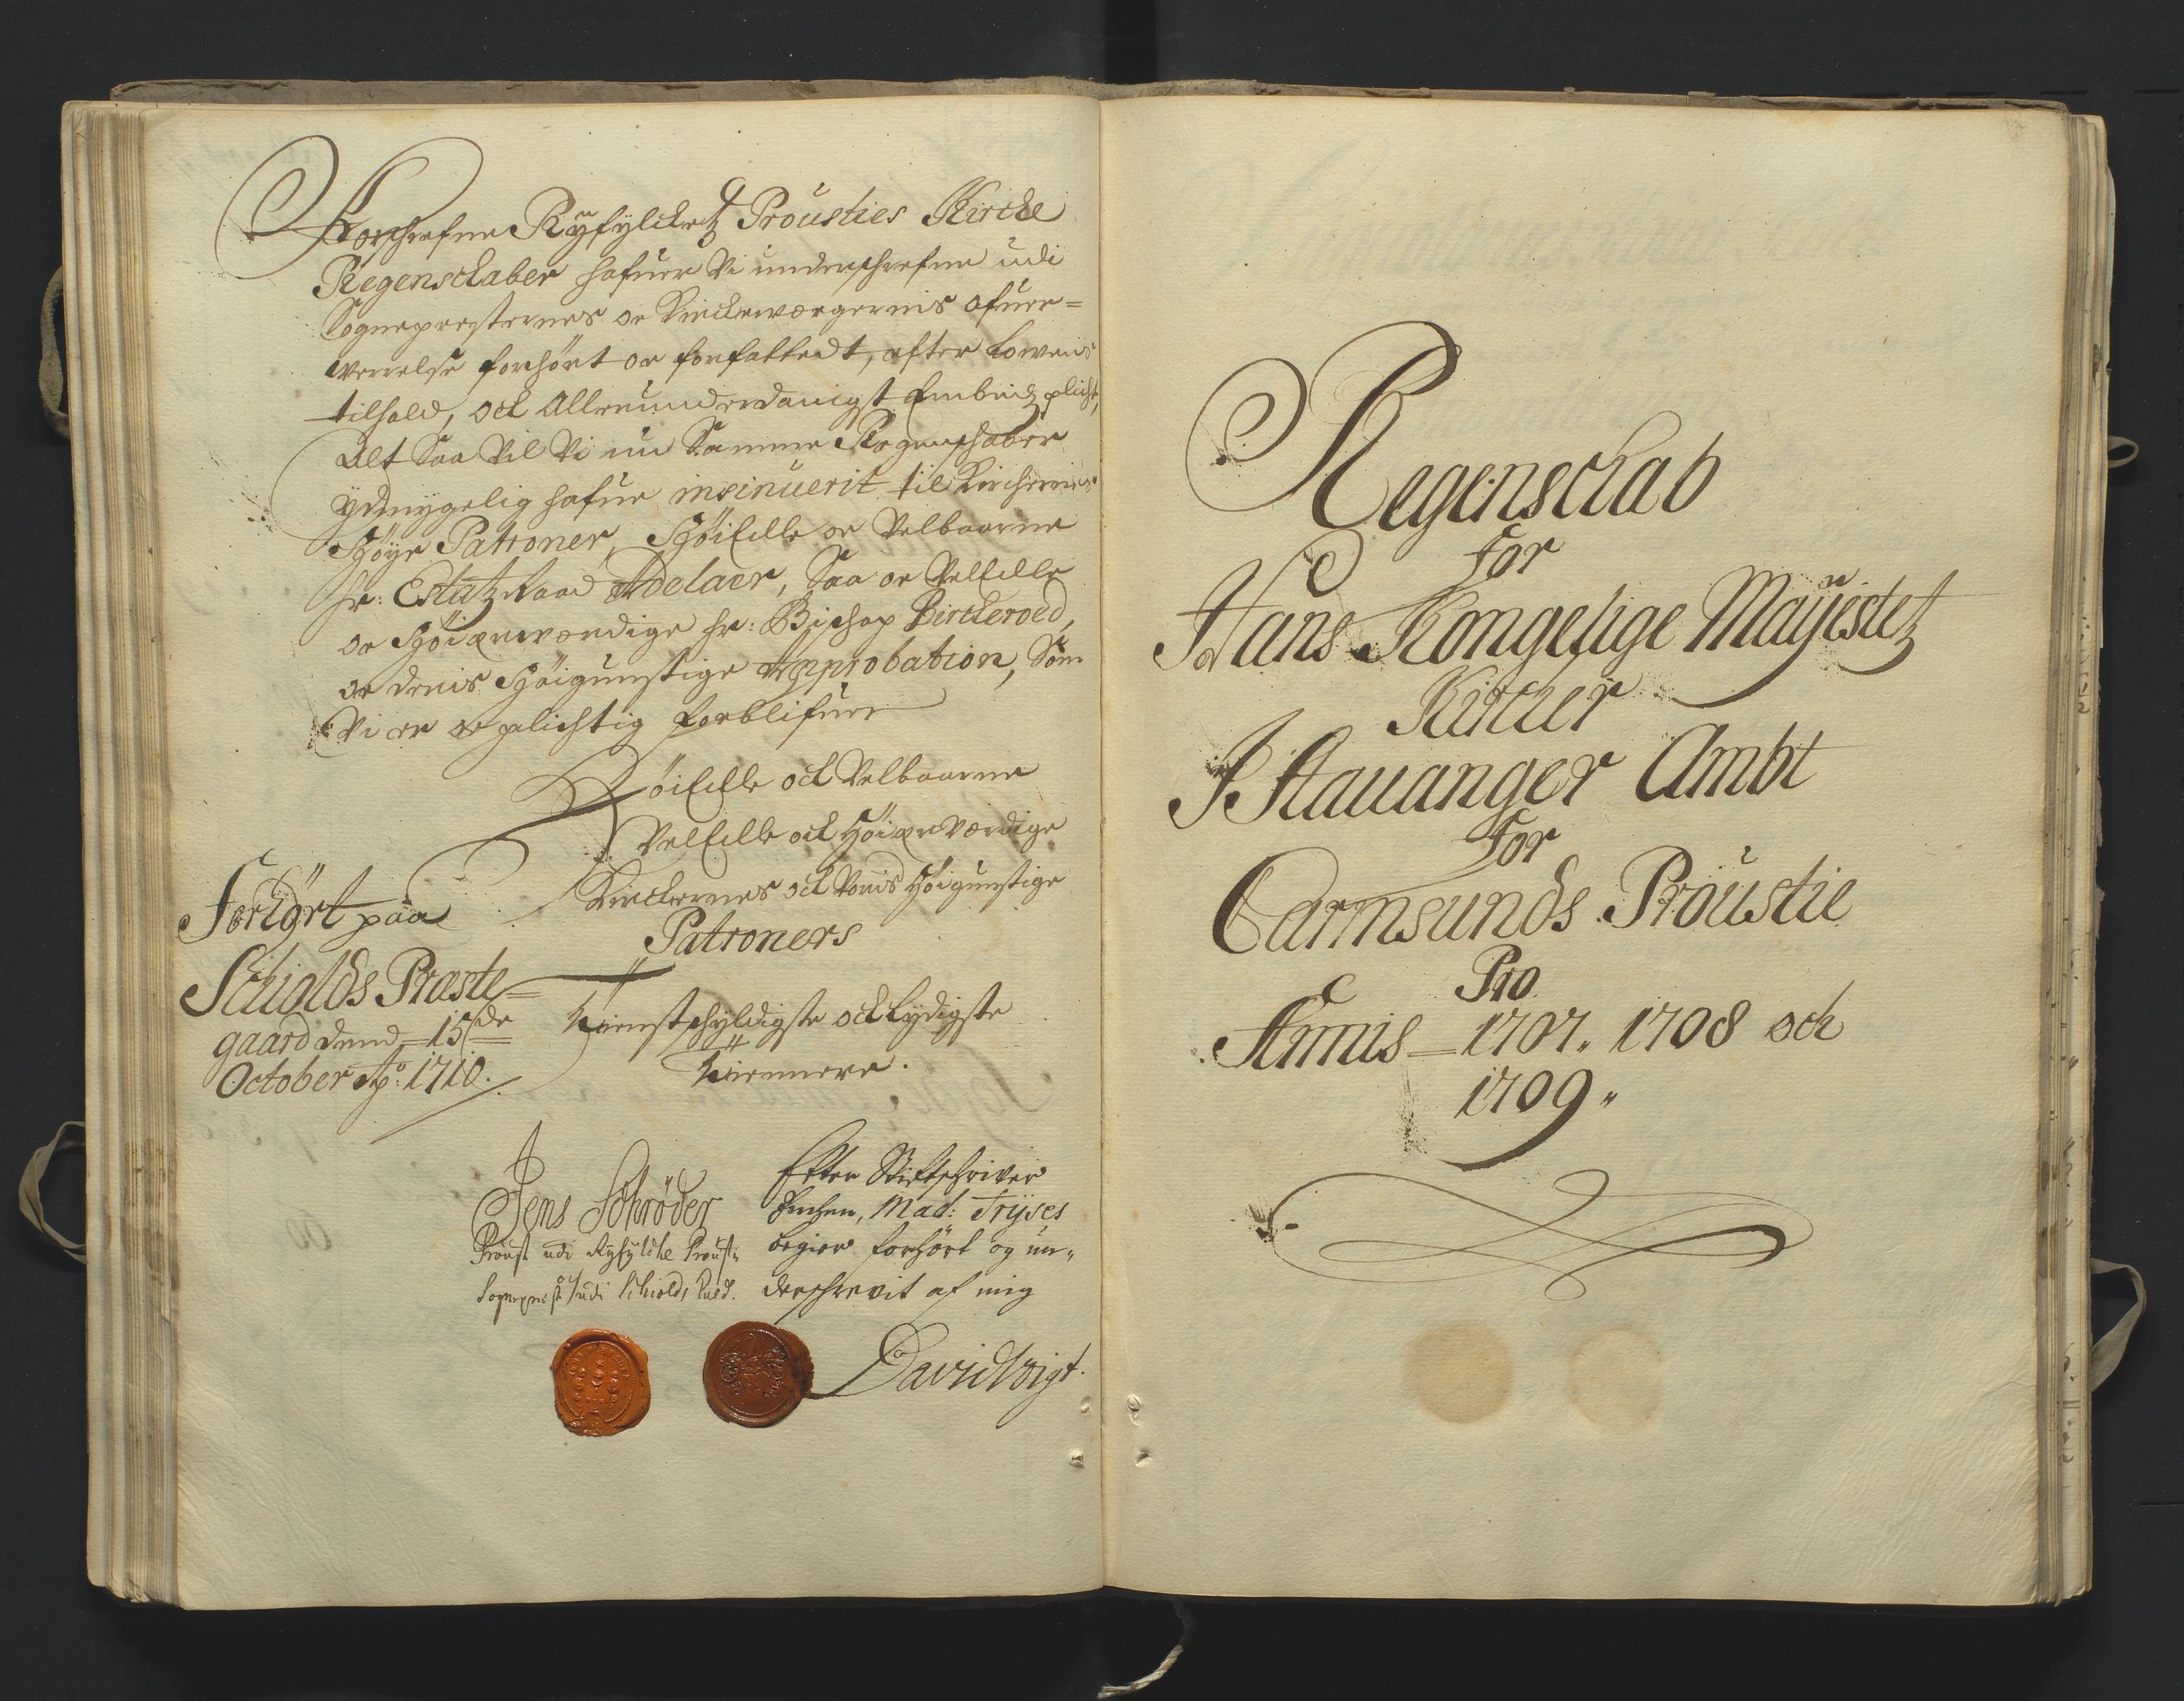 Forschrefne Ryfylcketz Prousties Kircke
Regenskaber hafuer Vi underschrefne udi
Sognepresternes oc Kirckeværgernis ofuer=
werrelse forhört oc forfattedt, efter Lowens
tilhold, ock Allerunderdanigst Embedz plicht,
Alt Saa Vil Vi nu Samme Regenschaber
Ydmygelig hafue insinuerit til Kirchernes
Höye Patroner, HöiEdle oc Velbaarne
Hr: Estatz Raad Adelaer, Saa oc VelEdle
oc Höiærværdige Hr: Bischop Birckeroed,
oc deris Höigunstige Approbation, Som
Vi er oc plichtig forblifuer
HöiEdle ock Velbaarne
VelEdle ock HöiærVærdige
Kirckernes ock Voris Höigunstige
Patroners
Tienstschyldigste ock Lydigste
Tiennere.
Forhört paa
Schiolds Præste=
gaard dend 15de
October Ao: 1710.
Jens Schröder
Proust udi Ryfylcke Proust:
Sogneprest udi Schiolds Gield.
Efter Stiftschriver
Enchen, Mad: Tryses
begier forhört og un„
derschrevit af mig
David Voigt.
Regenschab
For
Hans Kongelige Mayestetz
Kircker
I Stauanger Ambt
For
Carmsunds Proustie
Pro
Annis 1707. 1708 och
1709„